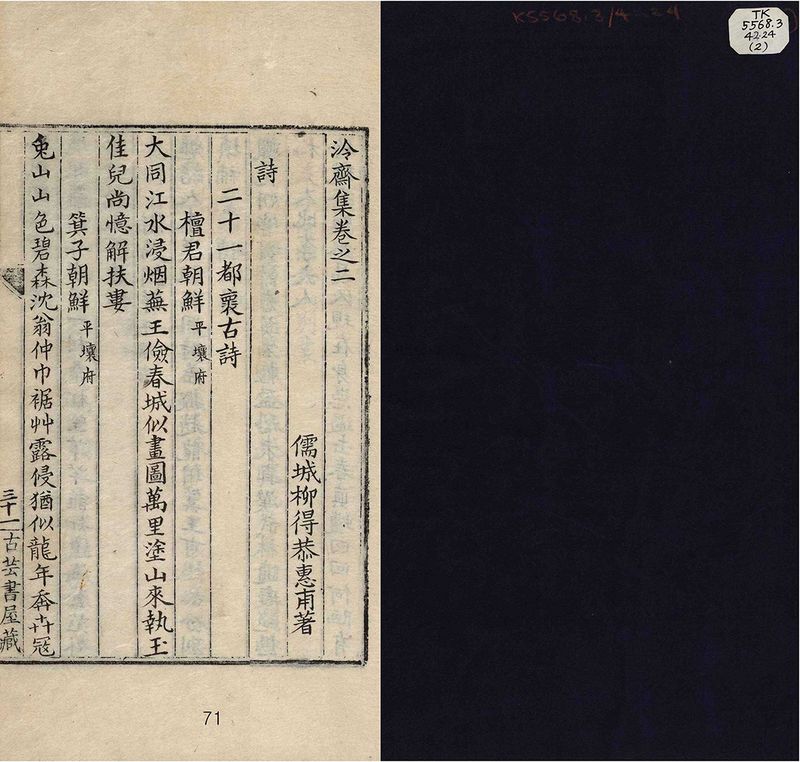 泠齋集卷之二
儒城柳得恭惠甫著
詩
二十一都裹古詩
檀君朝鮮 平壤府
大同江水浸烟蕪王儉春城似畫圖萬里塗山來執玉
佳兒尚憶解扶婁
箕子朝鮮 平壤府
兎山山色碧森沈翁仲巾裾艸露侵猶似龍年奔卉冠
三十一 古芸書屋藏
71
TK
5568.3
4224
(2)